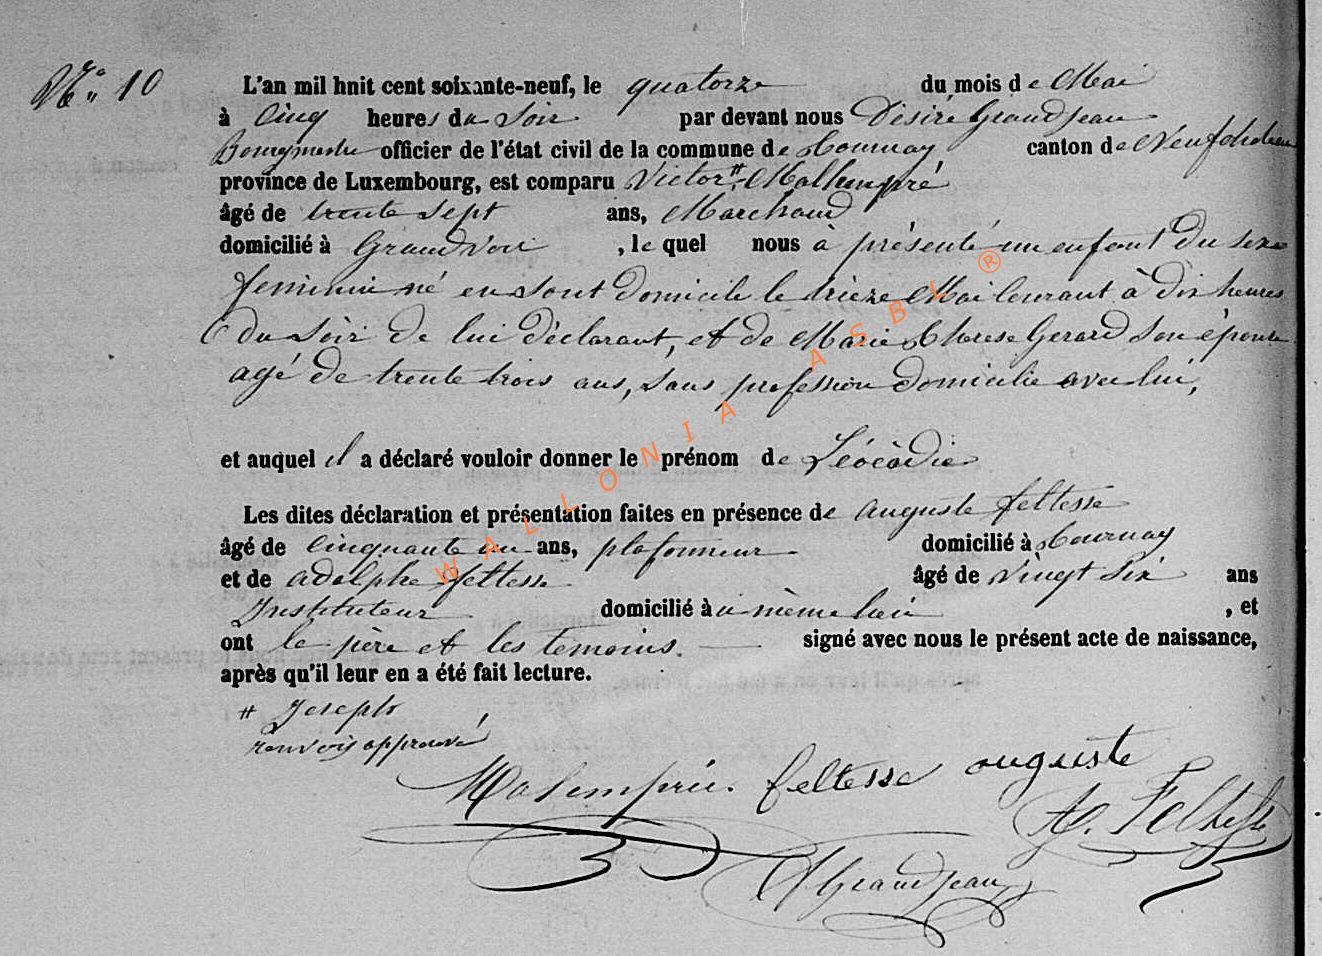 N° 10
L'an mil huit cent soixante-neuf, le quatorze du mois de Mai
à Cinq heures du Soir par devant nous Désiré Grandjean
Bourgmestre officier de l'état civil de la commune de Tournay canton de Neufchateau
province de Luxembourg, est comparu Victor # Mallempré
âgé de trente sept ans, Marchand
domicilié à Grandvoir , le quel nous à présenté un enfant du sexe
feminin né en sont domicile le trieze Mai Courant à dix heures
du Soir de lui déclarant, et de Marie Therese Gerard Son épouse
agé de trente trois ans, sans profession domicilie avec lui,
et auquel il a déclaré vouloir donner le prénom de Léocadie
Les dites déclaration et présentation faites en présence de auguste feltesse
âgé de Cinquante un ans, plafonneur domicilié à Tournay
et de adolphe feltesse âgé de Vingt Six ans
Instituteur domicilié à u même lieu , et
ont le père et les temoins. signé avec nous le présent acte de naissance,
après qu'il leur en a été fait lecture.
# Joseph
renvois approuvé
Malempré. feltesse auguste
Ad. Feltesse
Grandjean
WALLONIA ASBL ®